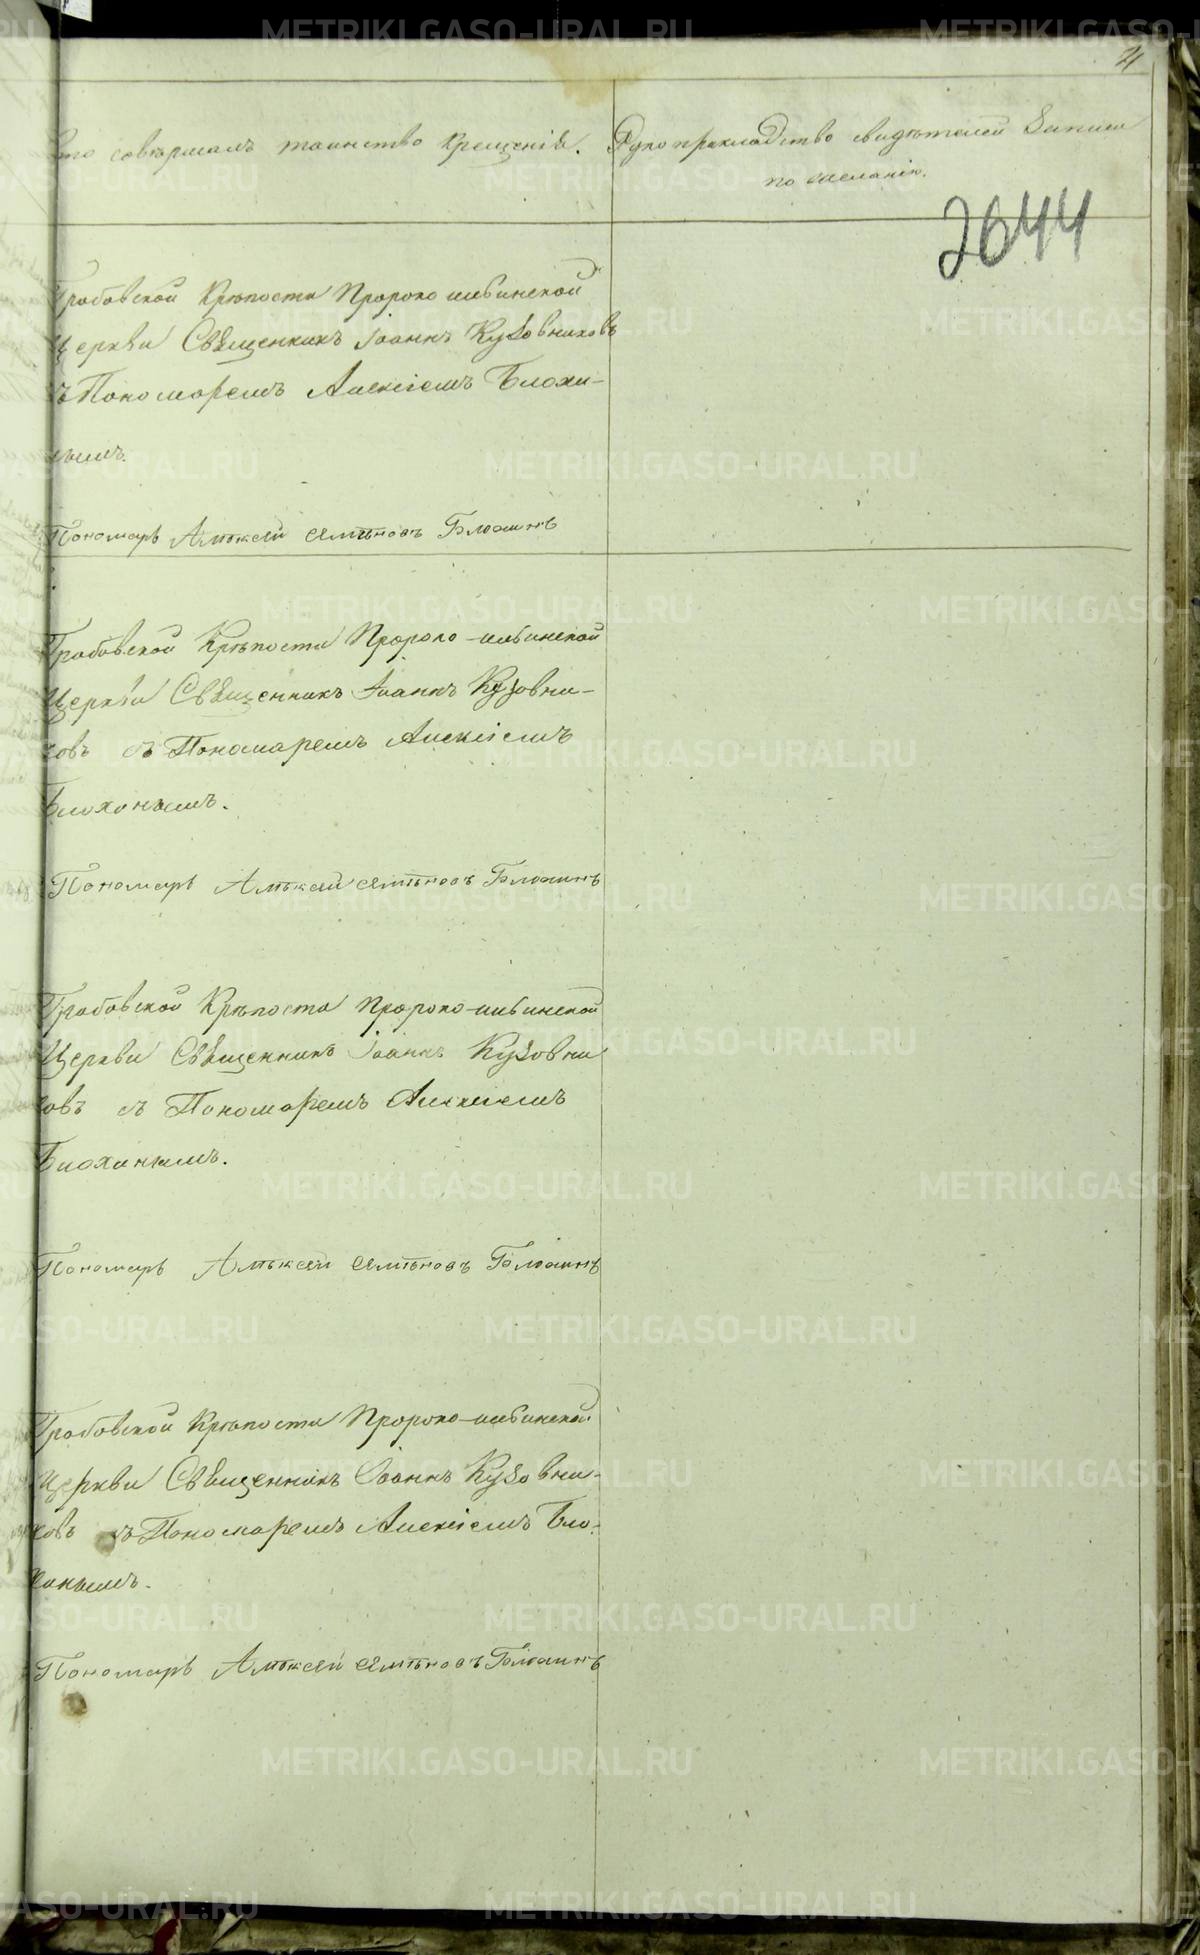 21
Кто совершалъ таинство крещенія.
Рукоприкладство свидѣтелей записи
по желанію.
2644
Грабовской Крѣпости Пророко ильинской
Церкви Священникъ Іоаннъ Кузовниковъ
съ Пономаремъ Алексіемъ Блохи-
нымъ.
Пономарь Алѣксей Семѣновъ Блохинъ
Грабовской Крѣпости Пророко-ильинской
Церкви Священникъ Іоаннъ Кузовни-
ковъ съ Пономаремъ Алексіемъ
Блохинымъ.
Пономарь Алѣксей Семѣновъ Блохинъ
Грабовской Крѣпости Пророко-ильинской
Церкви Священникъ Іоаннъ Кузовни
ковъ съ Пономаремъ Алексіемъ
Блохинымъ.
Пономарь Алѣксей Семѣновъ Блохинъ
Грабовской Крѣпости Пророко-ильинской
Церкви Священникъ Іоаннъ Кузовни-
ковъ съ Пономаремъ Алексіемъ Бло-
хинымъ.
Пономарь Алѣксей Семѣновъ Блохинъ
METRIKI.GASO-URAL.RU